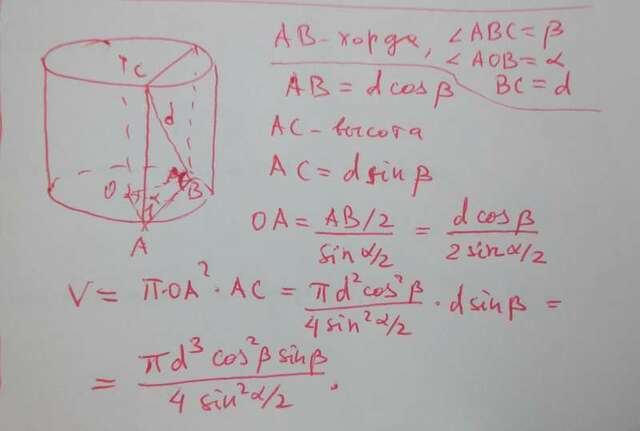 AB - хорда, ∠ABC = β
∠AOB = α
AB = d cos β BC = d
AC - высота
AC = d sin β
OA = (AB/2)/(sin α/2) = (d cos β)/(2 sin α/2)
V = π·OA² · AC = (πd² cos² β)/(4 sin² α/2) · d sin β =
= (πd³ cos² β sin β)/(4 sin² α/2).
C
d
O α
B
A